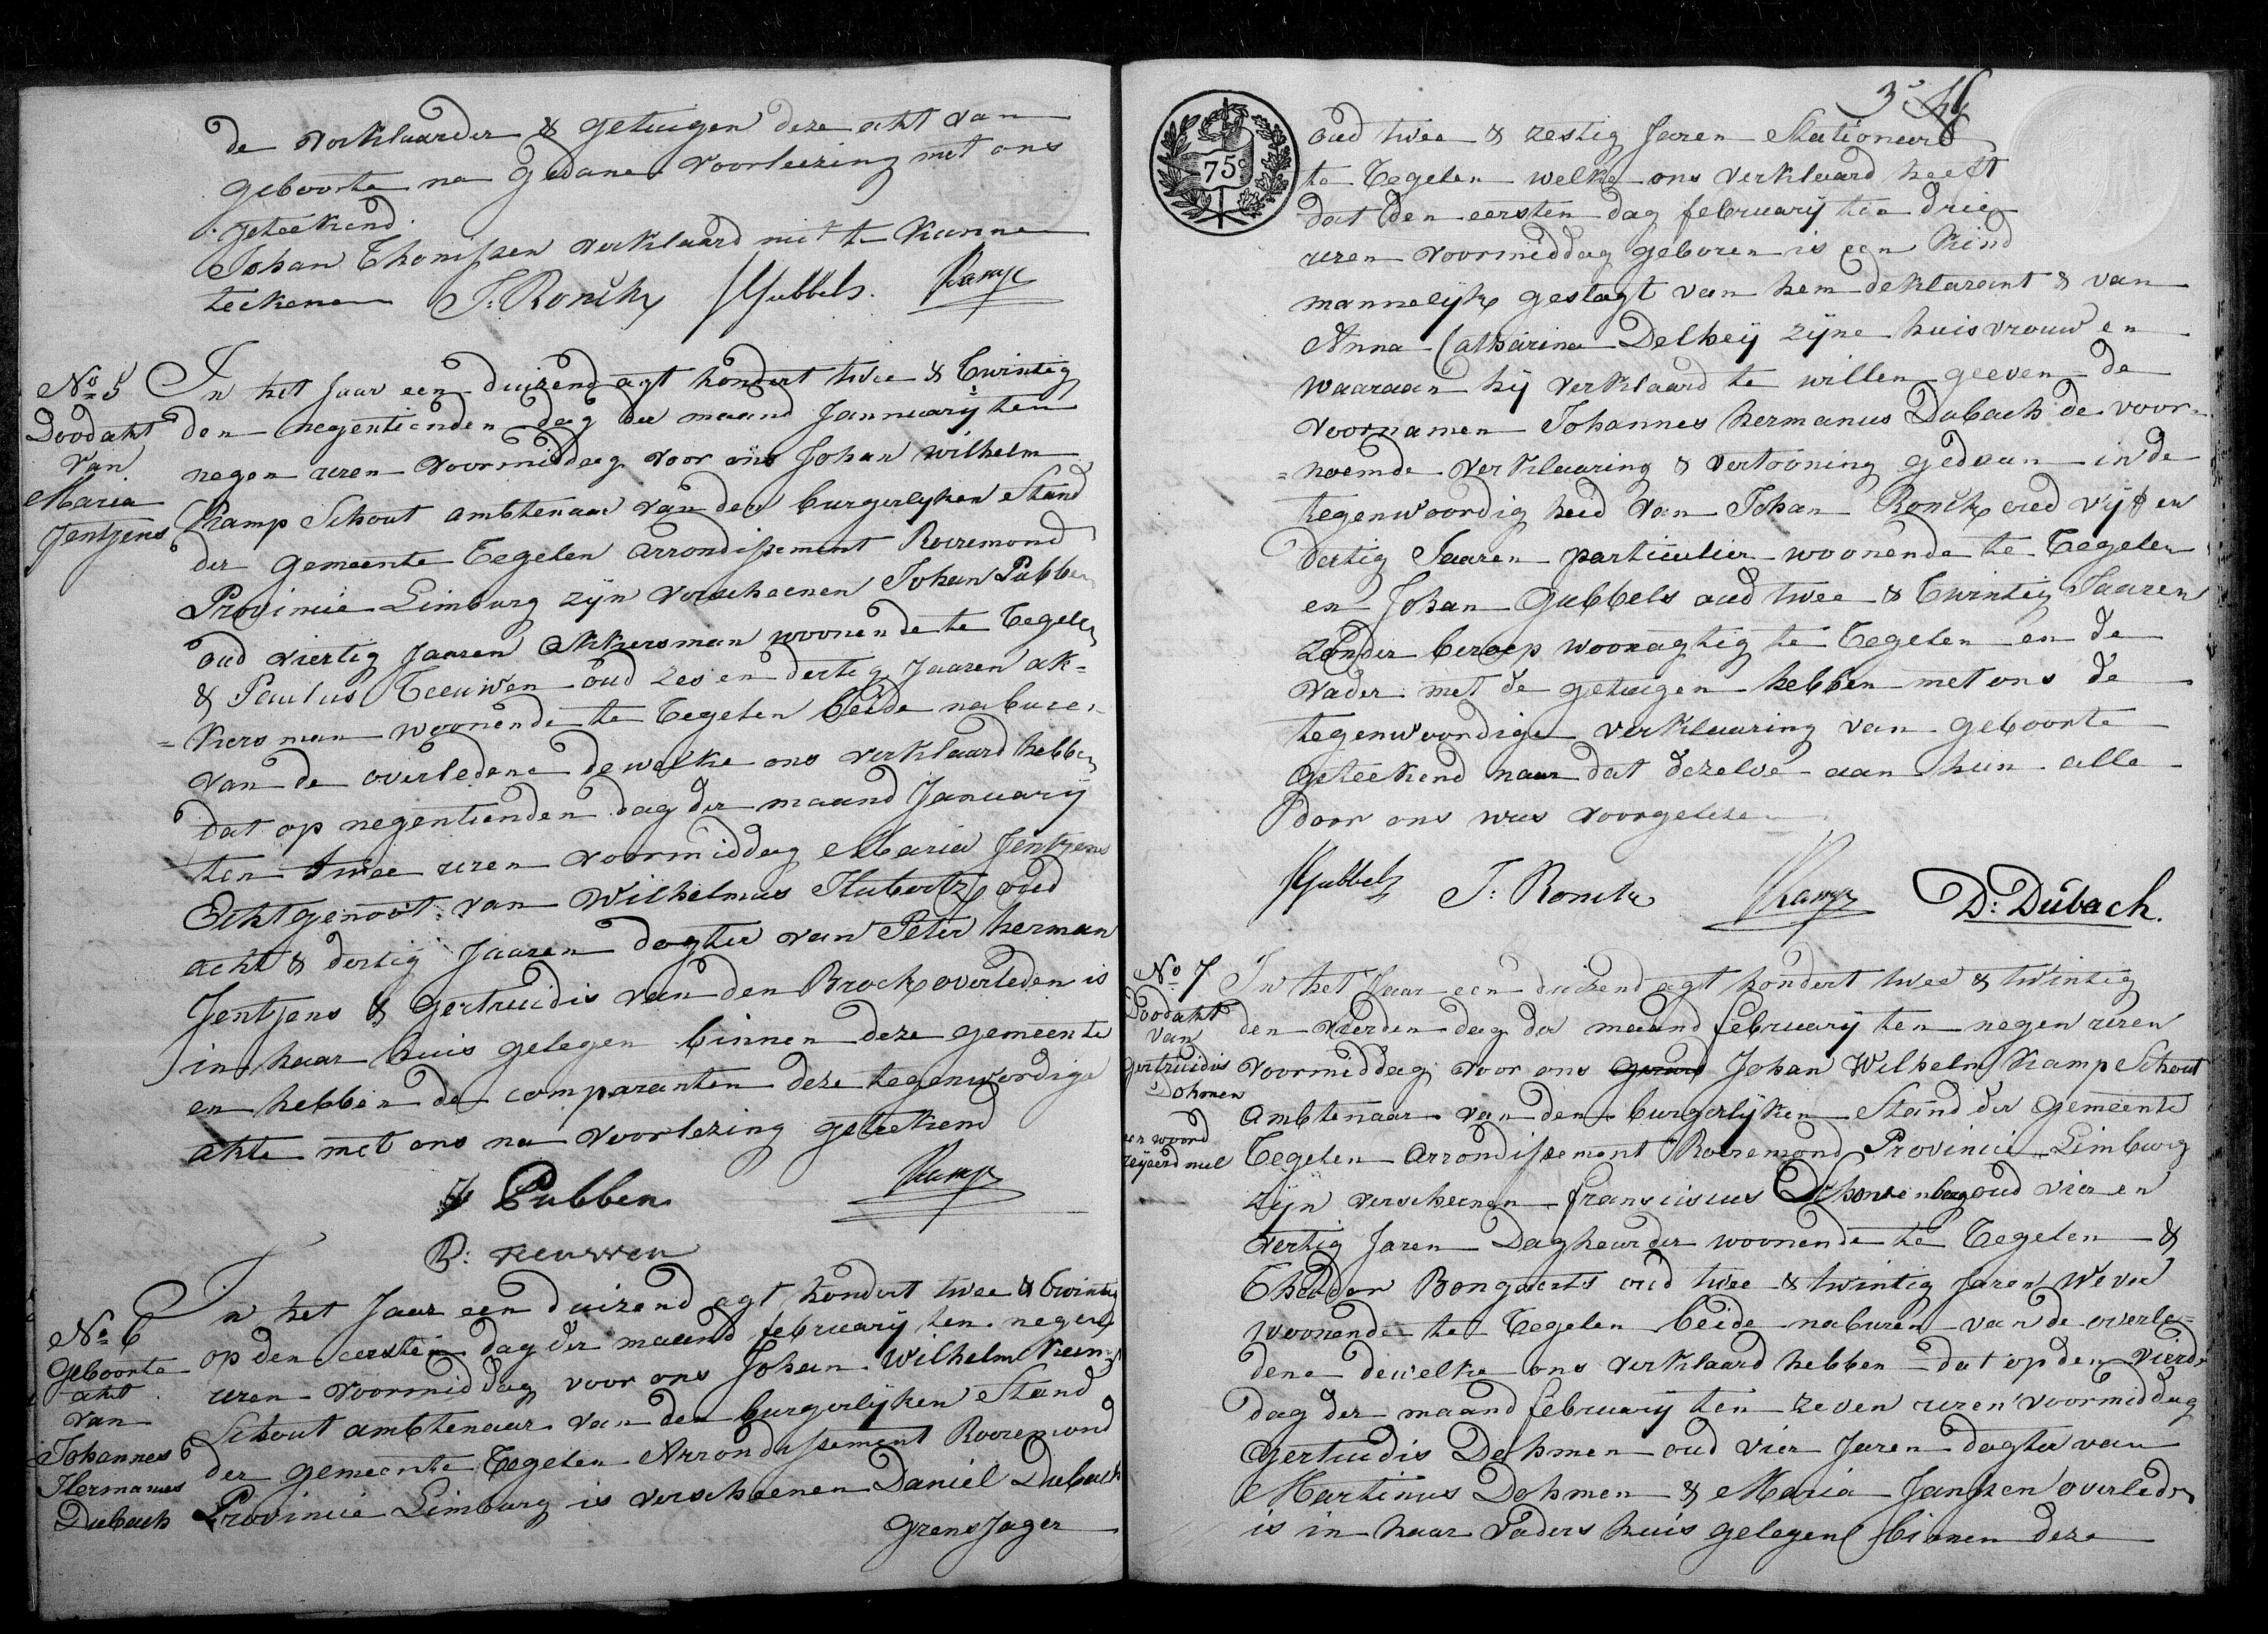 de verklaarder & getuigen deze akt van
geboorte na gedane voorleezing met ons
geteekend.
Johan Thonissen verklaard niet te kunne
teekenen J: Ronck JGubbels. Kamp
No 5
Doodakt
van
Maria
Jentjens
In het Jaar een duizend agt hondert twee & Twintig
den negentienden dag der maand Jannuarij ten
negen uren voormiddag voor ons Johan wilhelm
Kamp Schout ambtenaar van den burgerlyken Stand
der gemeente Tegelen Arrondissement Roeremond
Provincie Limburg zijn verscheenen Johan Pubben
oud viertig Jaaren Akkersman woonende te Tegelen
& Paulus Teeuwen oud zes en dertig Jaaren ak-
=kersman woonende te Tegelen beide nabuce-
van de overledene dewelke ons verklaard hebben
dat op negentienden dag der maand January
ten twee uren voormiddag Maria Jentjens
Echtgenoot van Wilhelmus Hubertz oud
acht & dertig Jaaren dogter van Peter herman
Jentjens & Gertruidis van den Brock overleden is
in haar huis gelegen binnen deze gemeente
en hebben de comparanten deze tegenwordige
akte met ons na voorlezing geteekend
J Pubben Kamp
P: teuwen
No 6
Geboorte
akt
van
Johannes
Hermanus
Dubach
In het Jaar een duizend agt hondert twee & twintig
op den eersten dag der maand february ten negen
uren voormiddag voor ons Johan Wilhelm Kamp
Schout ambtenaar van den burgerlijken Stand
der gemeente Tegelen Arrondissement Roeremond
Provincie Limburg is verscheenen Daniel Dubach
Grens Jager
3e
75c
oud twee & zestig Jaren Stationeerd
te Tegelen welke ons verklaard heeft
dat den eersten dag february ten drie
uren voormiddag geboren is een kind
mannelijk geslagt van hem deklarant & van
Anna Catharina Delheij zijne huisvrouw en
waaraan hij verklaard te willen geeven de
voornamen Johannes hermanus Dubach de voor-
=noemde verklaaring & vertooning gedaan in de
tegenwoordig heid van Johan Ronck oud vijf en
dertig Jaaren particulier woonende te Tegelen
en Johan Gubbels oud twee & Twintig Jaaren
zonder beroep woonagtig te Tegelen en de
vader met de getuigen hebben met ons de
tegenwoordige verklaaring van geboorte
geteekend naar dat dezelve aan hun alle
door ons was voorgeleze
JGubbels J: Ronck Kamp D: Dübach.
No 7
Doodakt
van
gertruidis
Dohmen
een woord
reijeerd nul
In het Jaar een duizend agt hondert twee & twintig
den vierden dag der maand february ten negen uren
voormiddag voor ons Johan Wilhelm Kamp Schout
Ambtenaar van den burgerlijken Stand der gemeente
Tegelen Arrondissement Roeremond Provincie Limburg
zijn verscheenen franciscus Schonenberg oud vier en
vertig Jaren Dagheurder woonende te Tegelen &
Theodor Bongaerts oud twee & twintig Jaren Wever
woonende te Tegelen beide naburen van de overle=
dene dewelke ons verklaard hebben dat op den vierde
dag der maand february ten zeven uren voormiddag
gertrudis Dohmen oud vier Jaren dogter van
Martinus Dohmen & Maria Janssen overleden
is in haar vaders huis gelegen binnen deze